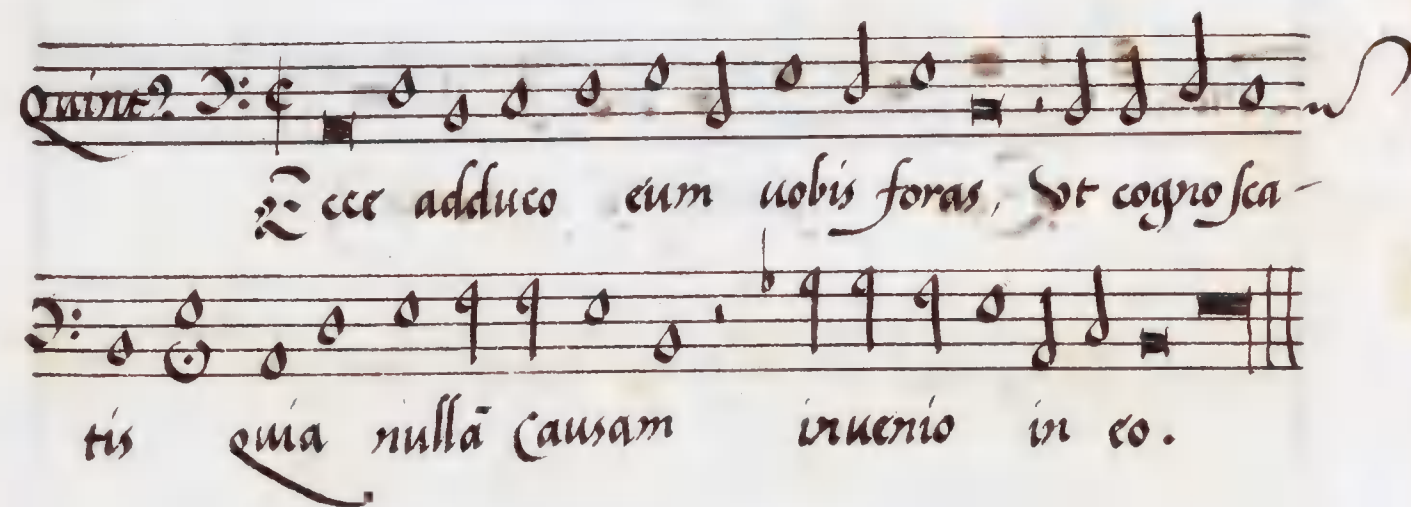 Quint9
Ecce adduco eum uobis foras, Vt cognosca-
tis quia nullā Causam inuenio in eo.